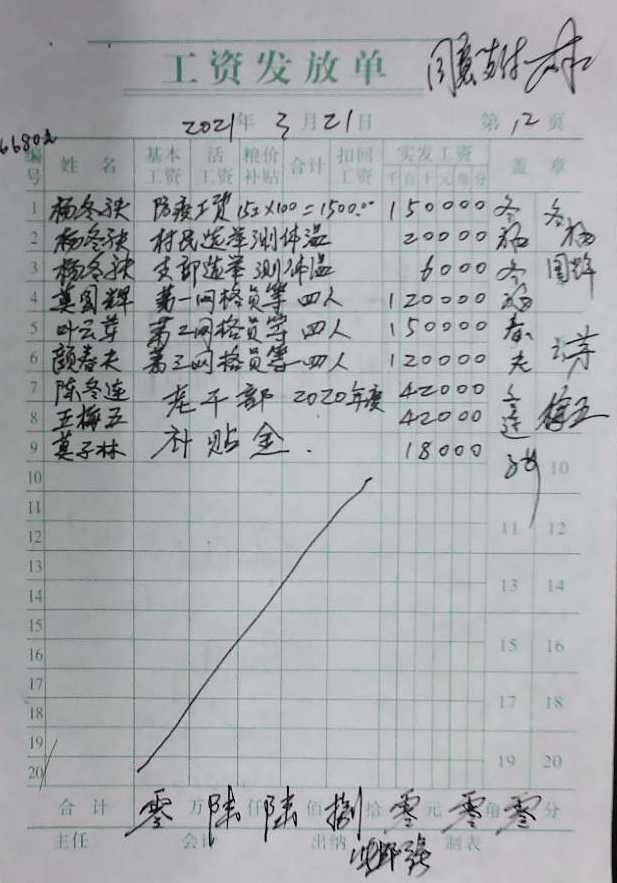 工资发放单 同意支付
2021年3月21日 第12页
6680元
编号 姓名 基本工资 活工资 粮价补贴 合计 扣回工资 实发工资 盖章
千百十元角分
1 杨冬秧 防疫工资 15工×100=1500.00 150000
2 杨冬秧 村民选举测体温 20000
3 杨冬秧 支部选举测体温 6000
4 莫国辉 第一网格员等四人 120000 国辉
5 叶云芽 第二网格员等四人 150000 云芽
6 颜春夫 第三网格员等四人 120000 春夫
7 陈冬连 老干部2020年度 42000 冬连
8 王梅五 42000 梅五
补贴金.
9 莫子林 18000
10 10
11
12 11 12
13
14 13 14
15
16 15 16
17
18 17 18
19
20 19 20
合计 零万陆仟陆佰捌拾零元零角零分
主任 会计 出纳 制表